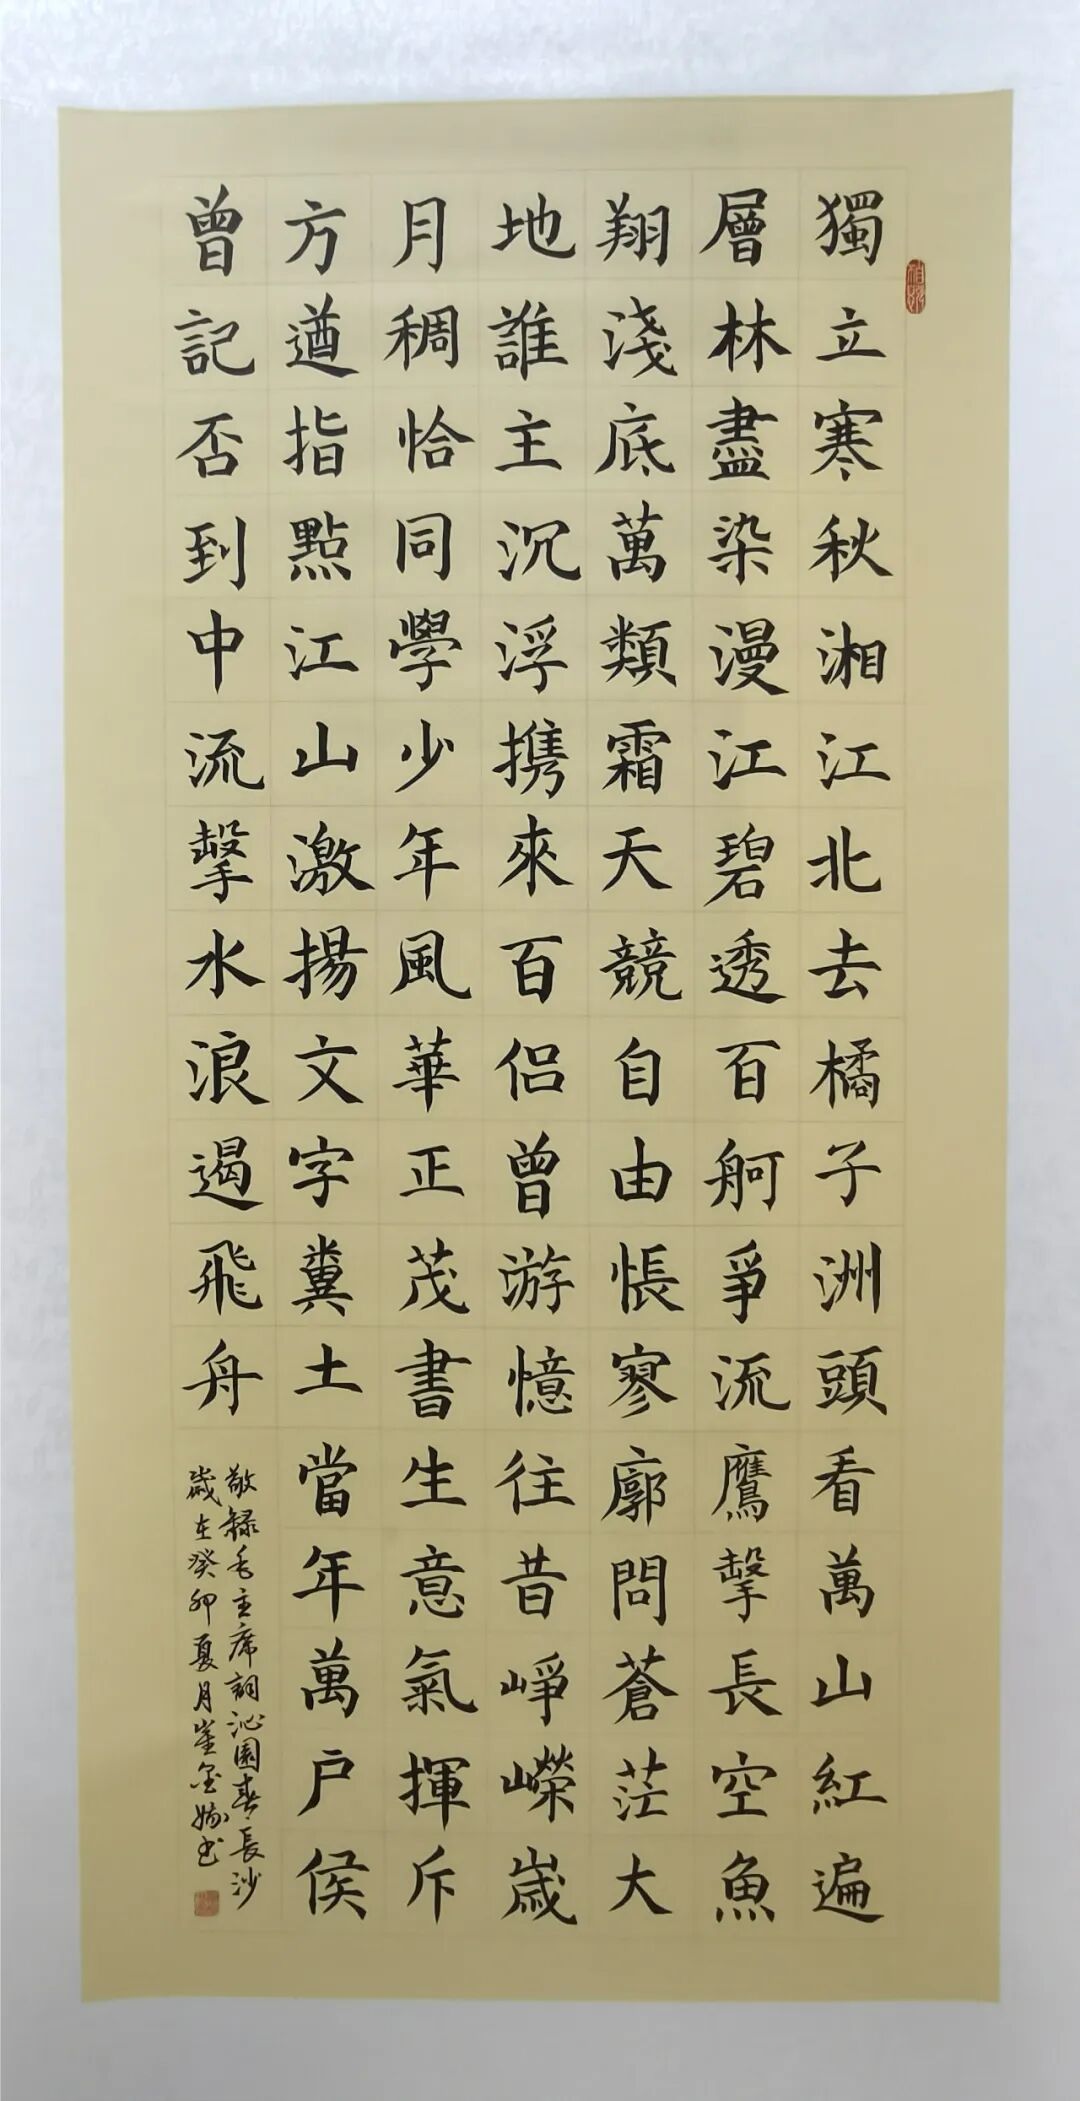 獨立寒秋湘江北去橘子洲頭看萬山紅遍
層林盡染漫江碧透百舸爭流鷹擊長空魚
翔淺底萬類霜天競自由悵寥廓問蒼茫大
地誰主沉浮携來百侶曾游憶往昔崢嶸歲
月稠恰同學少年風華正茂書生意氣揮斥
方遒指點江山激揚文字糞土當年萬户侯
曾記否到中流擊水浪遏飛舟
敬録毛主席詞沁園春長沙
歲在癸卯夏月崔金书